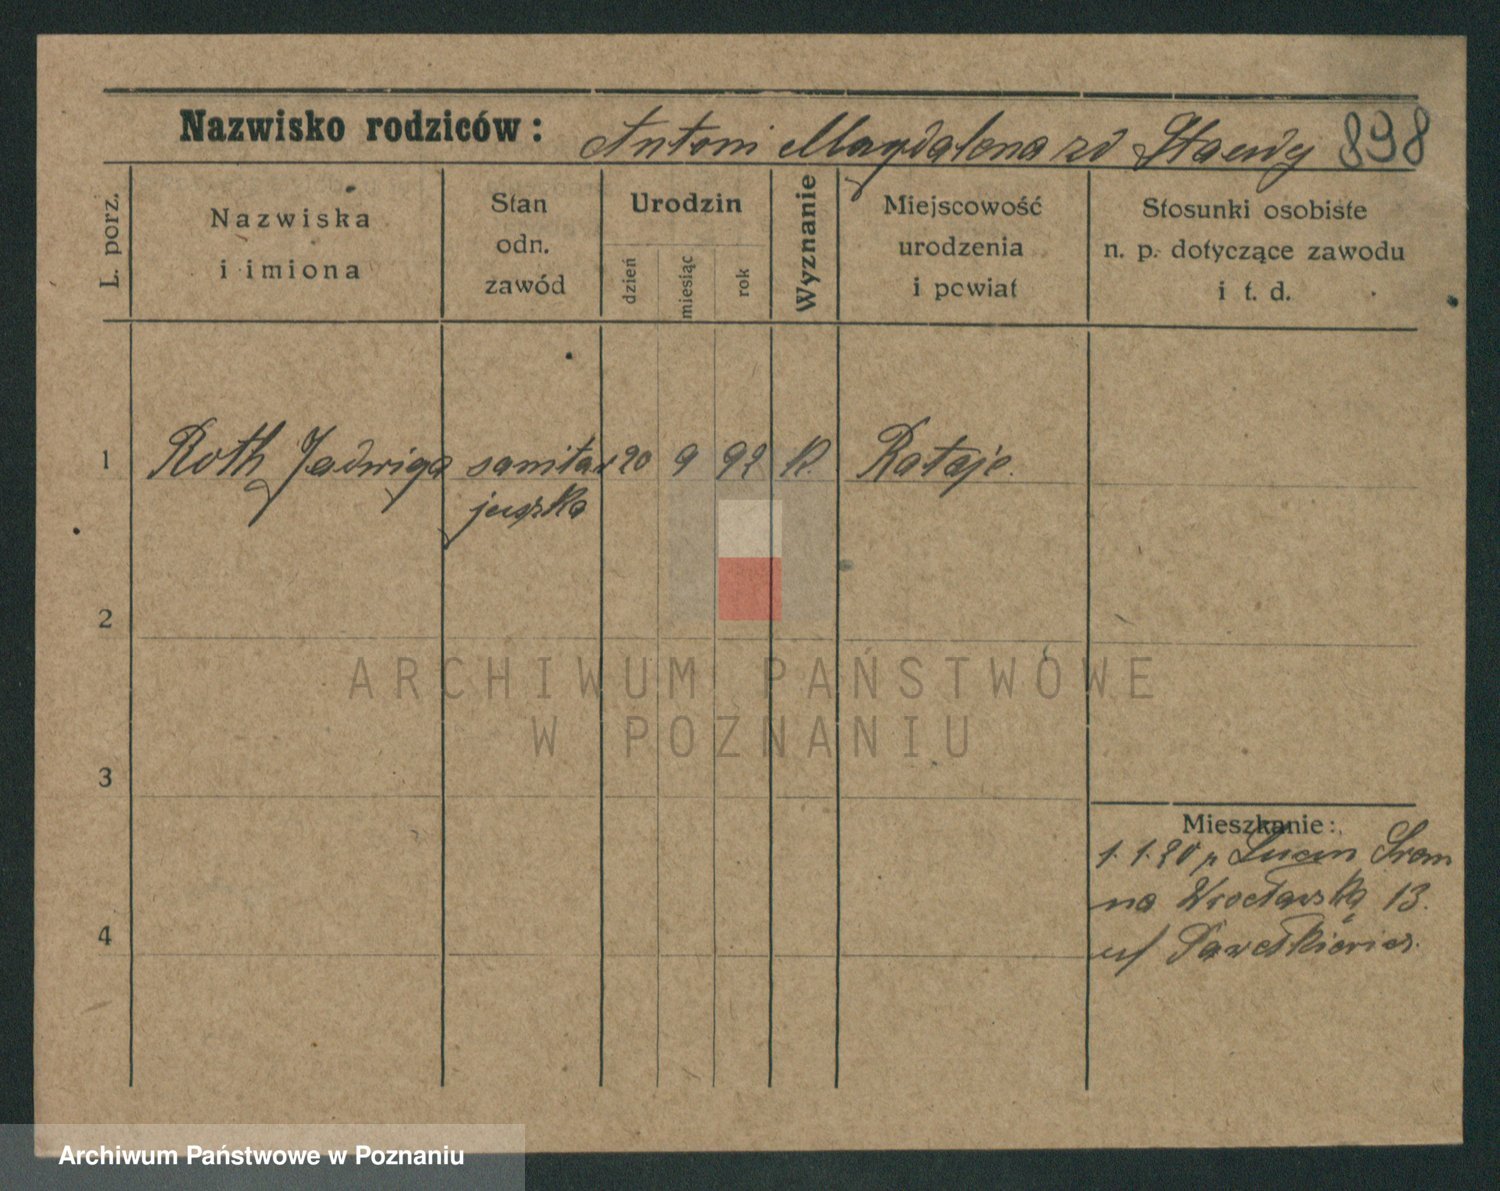 Nazwisko rodziców: Antoni Magdalena zd 898
L. porz.
Nazwiska
i imiona
Stan
odn.
zawód
Urodzin
dzień
miesiąc
rok
Wyznanie
Miejscowość
urodzenia
i powiat
Stosunki osobiste
n. p. dotyczące zawodu
i t. d.
1 Roth Jadwiga sanitar 20 9 92 K. Rataje.
juszka
2
3
4
Mieszkanie:
1.1.20 p
na Wrocławską 13.
u/
ARCHIWUM PAŃSTWOWE
W POZNANIU
Archiwum Państwowe w Poznaniu